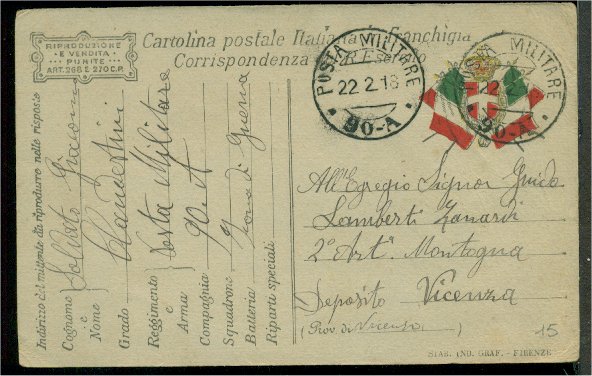 RIPRODUZIONE
E VENDITA
PUNITE
ART. 268 E 270 C.P.
Cartolina postale Italiana in Franchigia
Corrispondenza
POSTA MILITARE
22 2.18
90-A
POSTA MILITARE
22.2
90-A
Indirizzo del mittente da riprodurre nelle risposte
Cognome e Nome
Grado
Reggimento e Arma Posta Militare
Compagnia 90 A
Squadrone Zona di Guerra
Batteria
Riparti speciali
All'Egregio Signor Guido
Lamberti Zanardi
2° Art. Montagna
Deposito Vicenza
(Prov. di Vicenza)
15
STAB. IND. GRAF. - FIRENZE